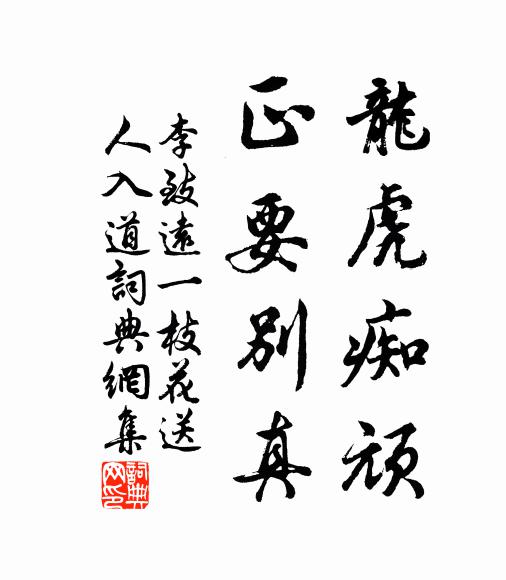 龍虎痴頑
正要別真
李致遠一枝花送
人入道詞典網集
詞典网印